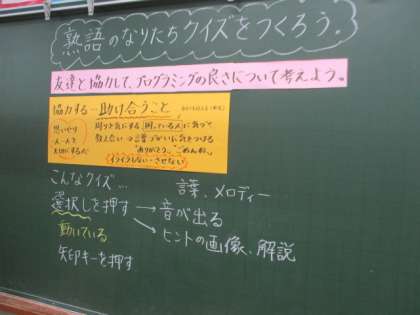 熟語のなりたちクイズをつくろう。
友達と協力して、プログラミングの良さについて考えよう。
協力する…助け合うこと
思いやり
周りを気にする 困っている人に気づく
教え合い→言葉づかいに気をつける
"ありがとう。" "ごめんね。"
イライラしない・させない
こんなクイズ…
言葉、メロディー
選択しを押す → 音が出る
動いている
ヒントの画像、解説
矢印キーを押す